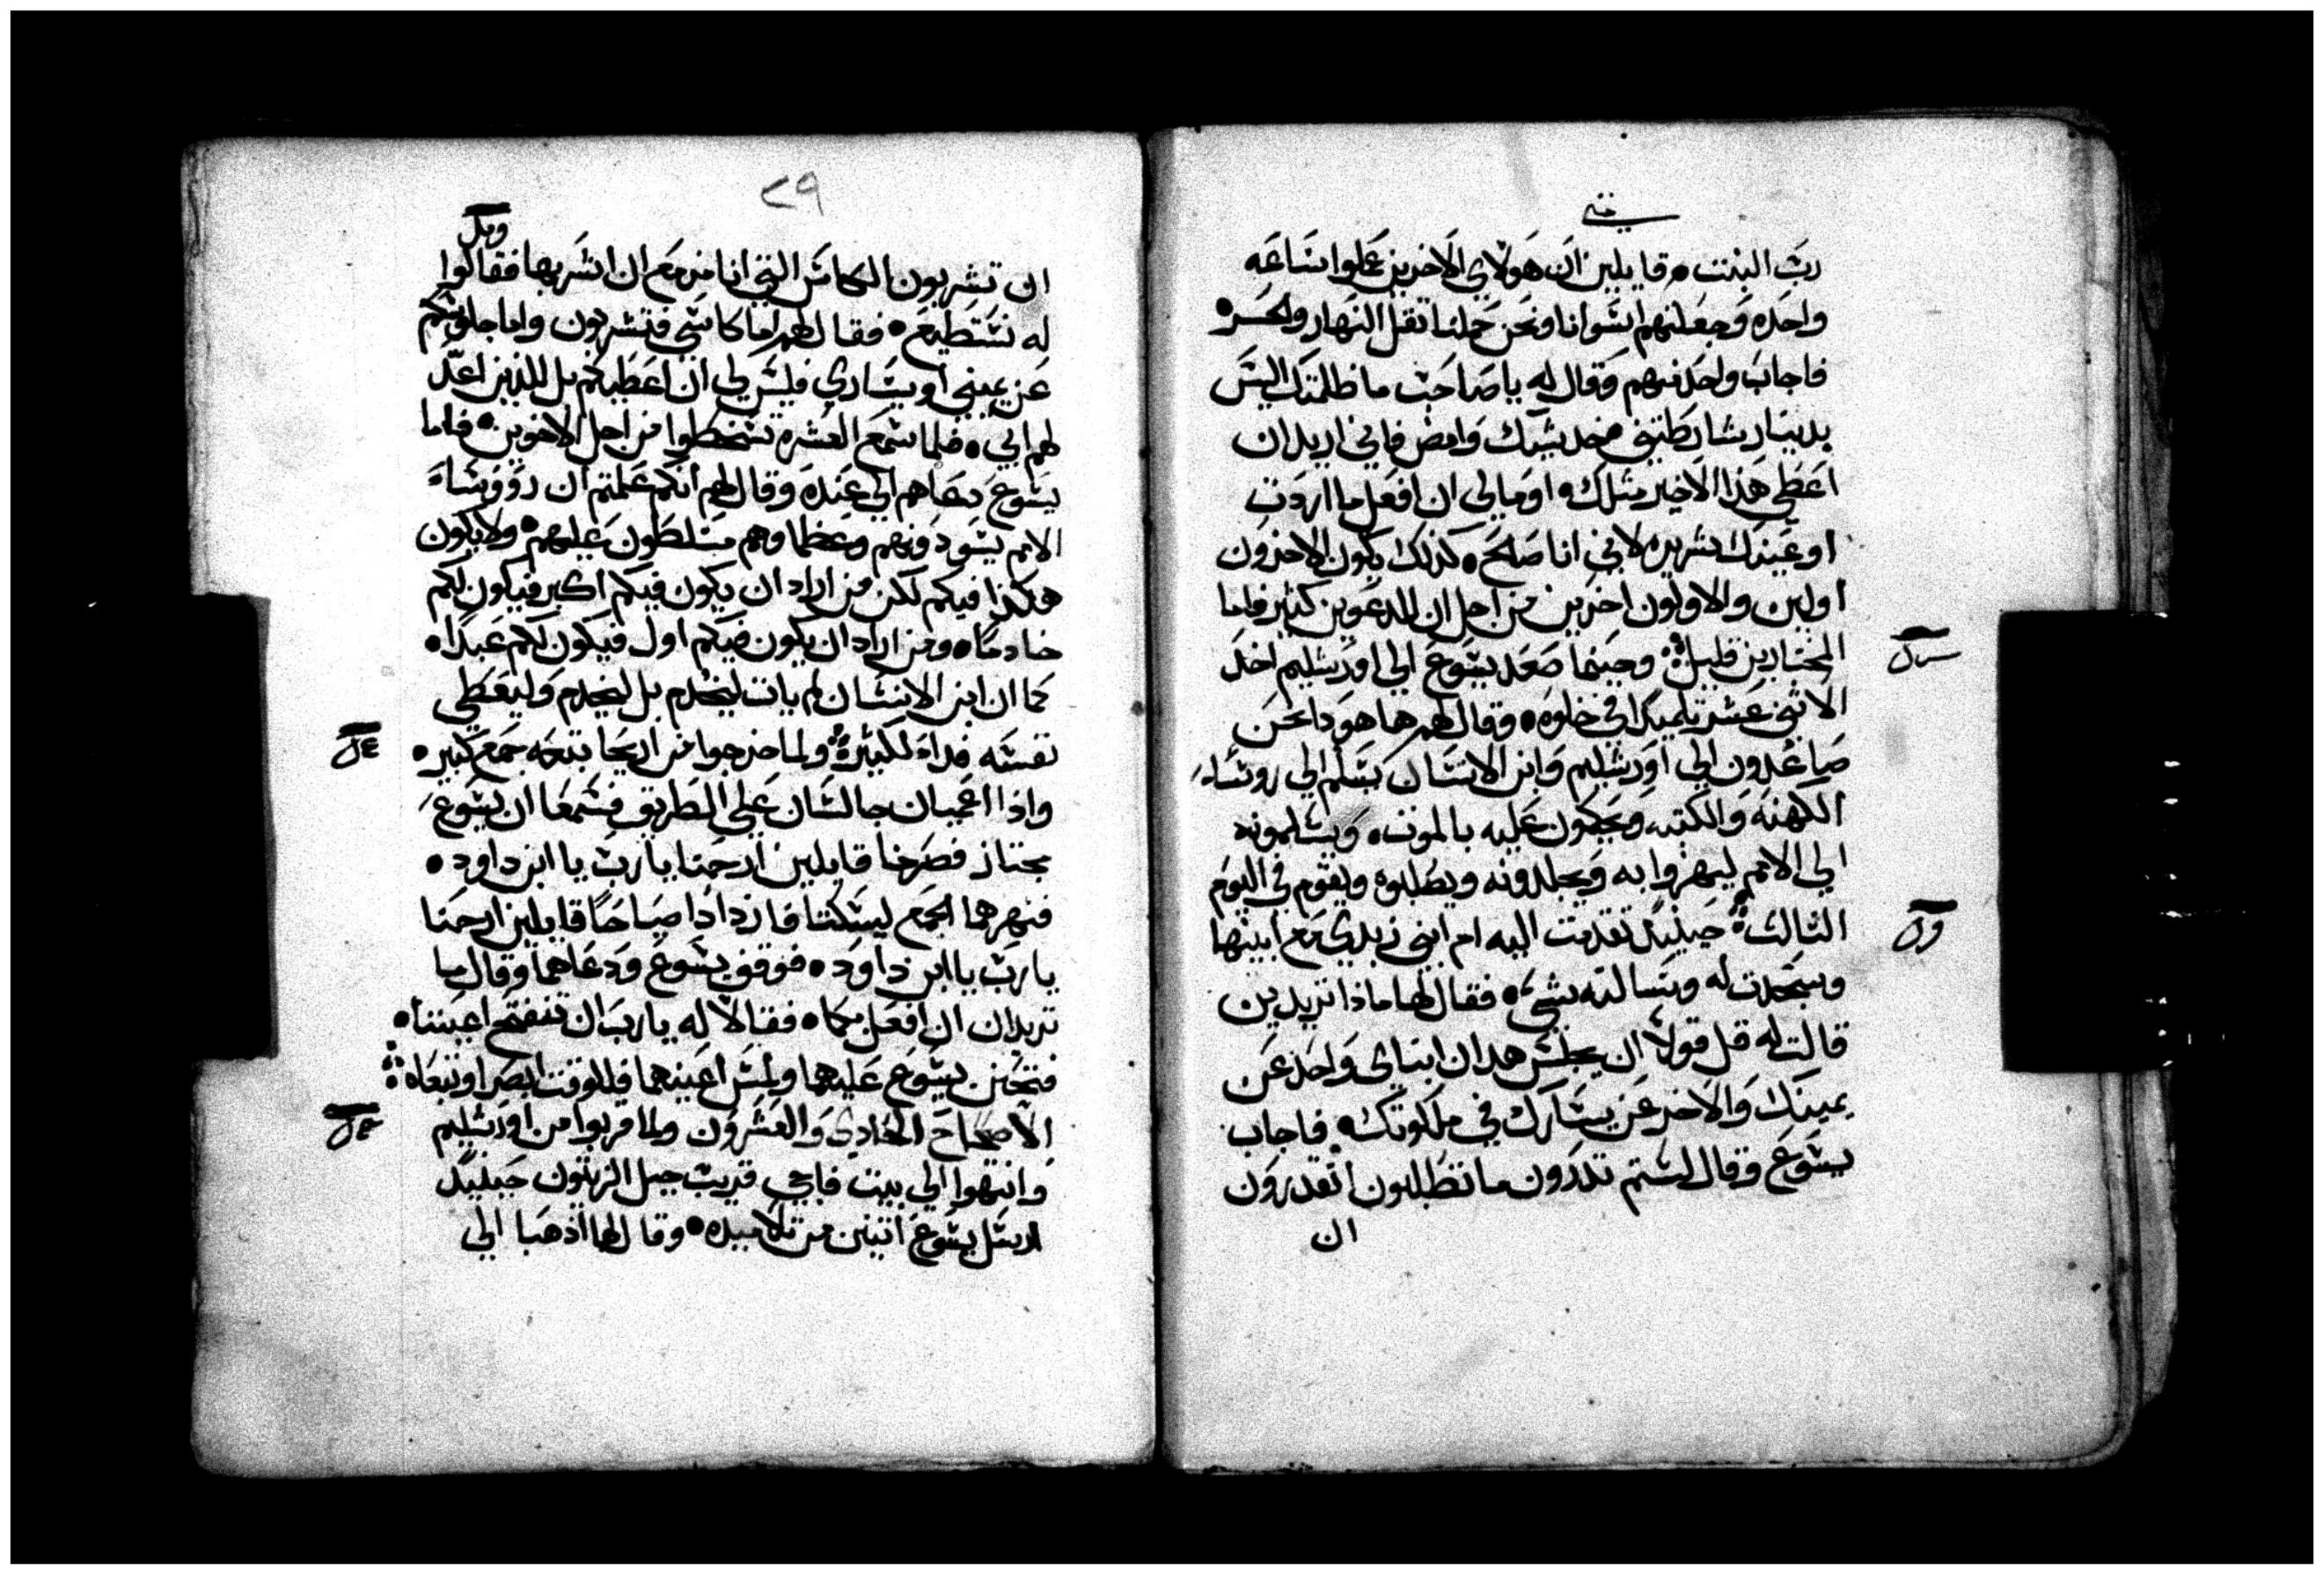 متي
رب البيت • قايلين ان هولاي الاخرين عملوا ساعه
واحده وجعلتهم اسوانا ونحن حملنا تقل النهار والحر •
فاجاب واحد منهم وقال له يا صاحب ما ظلمتك اليس
بدينار شارطتني خد شيك وامض فاني اريد ان
اعطي هذا الاخير مثلك • او ما لي ان افعل ما اردت
او عينك شريره لاني انا صالح • كذلك يكون الاخرون
اولين والاولون اخرين من اجل ان المدعوين كثير فاما
المختارين قليل وحينما صعد يسوع الي اورشليم اخد
الاثني عشر تلميدا في خلوه • وقال لهم ها هودا نحن
صاعدون الي اورشليم وابن الانسان يسلم الي روساء
الكهنه والكتبه ويحكمون عليه بالموت • ويسلمونه
الي الامم ليهزوا به ويجلدونه ويصلبوه ويقوم في اليوم
الثالث حينيد تقدمت اليه ام ابني زبدي مع ابنيها
وسجدت له وتساله بشيء • فقال لها ماذا تريدين
قالت له قل قولا ان يجلس هدان ابناي واحد عن
يمينك والاخر عن يسارك في ملكوتك • فاجاب
يسوع وقال لستم تدرون ما تطلبون اتقدرون
ان
٢٩
ان تشربون الكاس التي انا مزمع ان اشربها فقالوا
له نستطيع • فقال لهم اما كاسي فتشربون واما جلوسكم
عن يميني او يساري فليس لي ان اعطيكم بل للذين اعد
لهم ابي • فلما سمع العشره تسخطوا من اجل الاخوين • فاما
يسوع دعاهم الي عنده وقال لهم انكم علمتم ان رووساء
الامم يسودونهم وعظماوهم مسلطون عليهم • ولا يكون
هكذا فيكم لكن من اراد ان يكون فيكم اكبر فيكون لكم
خادما • ومن اراد ان يكون فيكم اول فيكون لكم عبدا •
كما ان ابن الانسان لم يات ليخدم بل ليخدم وليعطي
نفسه فداء لكثيرة ولما خرجوا من اريحا تبعه جمع كبير •
واذا اعميان جالسان علي الطريق فسمعا ان يسوع
مجتاز فصرخا قايلين ارحمنا يا رب يا ابن داود •
فنهرهما الجمع ليسكتا فازدادا صياحا قايلين ارحمنا
يا رب يا ابن داود • فوقف يسوع ودعاهما وقال ما
تريدان ان افعل بكما • فقالا له يا رب ان تنفتح اعيننا •
فتحنن يسوع عليهما ولمس اعينهما فللوقت ابصرا وتبعاه
الاصحاح الحادي والعشرون ولما قربوا من اورشليم
وانتهوا الي بيت فاجي قريب جبل الزيتون حينيد
ارسل يسوع اتنين من تلاميده • وقال لهما اذهبا الي